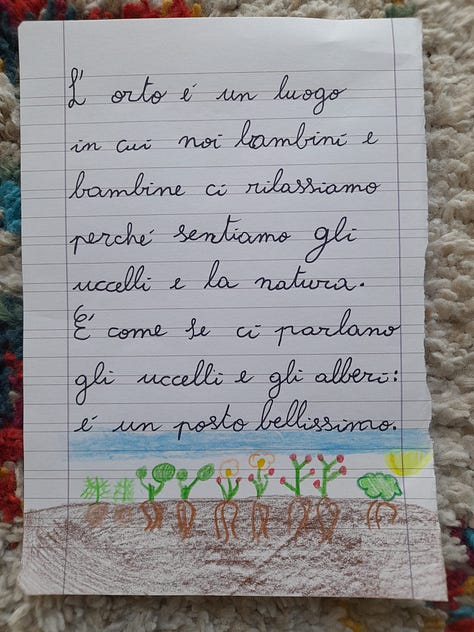 L' orto é un luogo
in cui noi bambini e
bambine ci rilassiamo
perché sentiamo gli
uccelli e la natura.
É come se ci parlano
gli uccelli e gli alberi:
é un posto bellissimo.